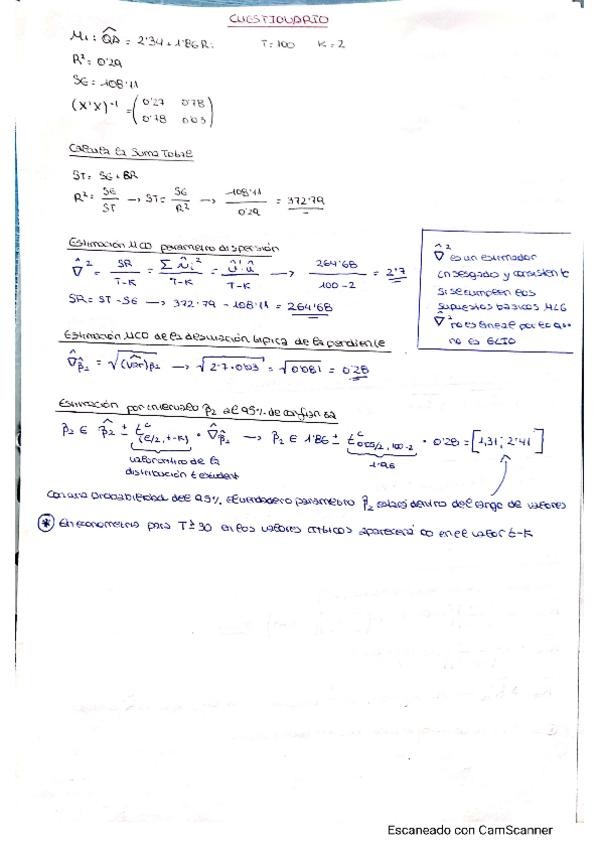 CUESTIONARIO
M1: Q̂A = 2'34 + 1'86Ri T=100 K=2
R² = 0'29
SE = 108'11
(X'X)⁻¹ = (0'27 0'78
0'78 0'03)
Calcula la Suma Total
ST = SE + SR
R² = SE/ST → ST = SE/R² → 108'11/0'29 = 372'79
Estimación MCO parámetro dispersión
σ̂² = SR/T-K = Σûi²/T-K = û'û/T-K → 264'68/100-2 = 2'7
SR = ST - SE → 372'79 - 108'11 = 264'68
σ̂² es un estimador
insesgado y consistente
si se cumplen los
supuestos básicos MLG
σ̂² no es lineal por lo que
no es ELIO
Estimación MCO de la desviación típica de la pendiente
σ̂β̂2 = √(Var)β2 → √2'7·0'03 = √0'081 = 0'28
Estimación por intervalo β2 al 95% de confianza
β2 ∈ β̂2 ± t^c(ε/2, T-K) · σ̂β̂2 → β2 ∈ 1'86 ± t^c 0'05/2, 100-2 · 0'28 = [1,31; 2'41]
valor crítico de la 1'96
distribución t student
Con una probabilidad del 95% el verdadero parámetro β2 estará dentro del rango de valores
* En econometría para T≥30 en los valores críticos aparecerá ∞ en el valor t-K
Escaneado con CamScanner